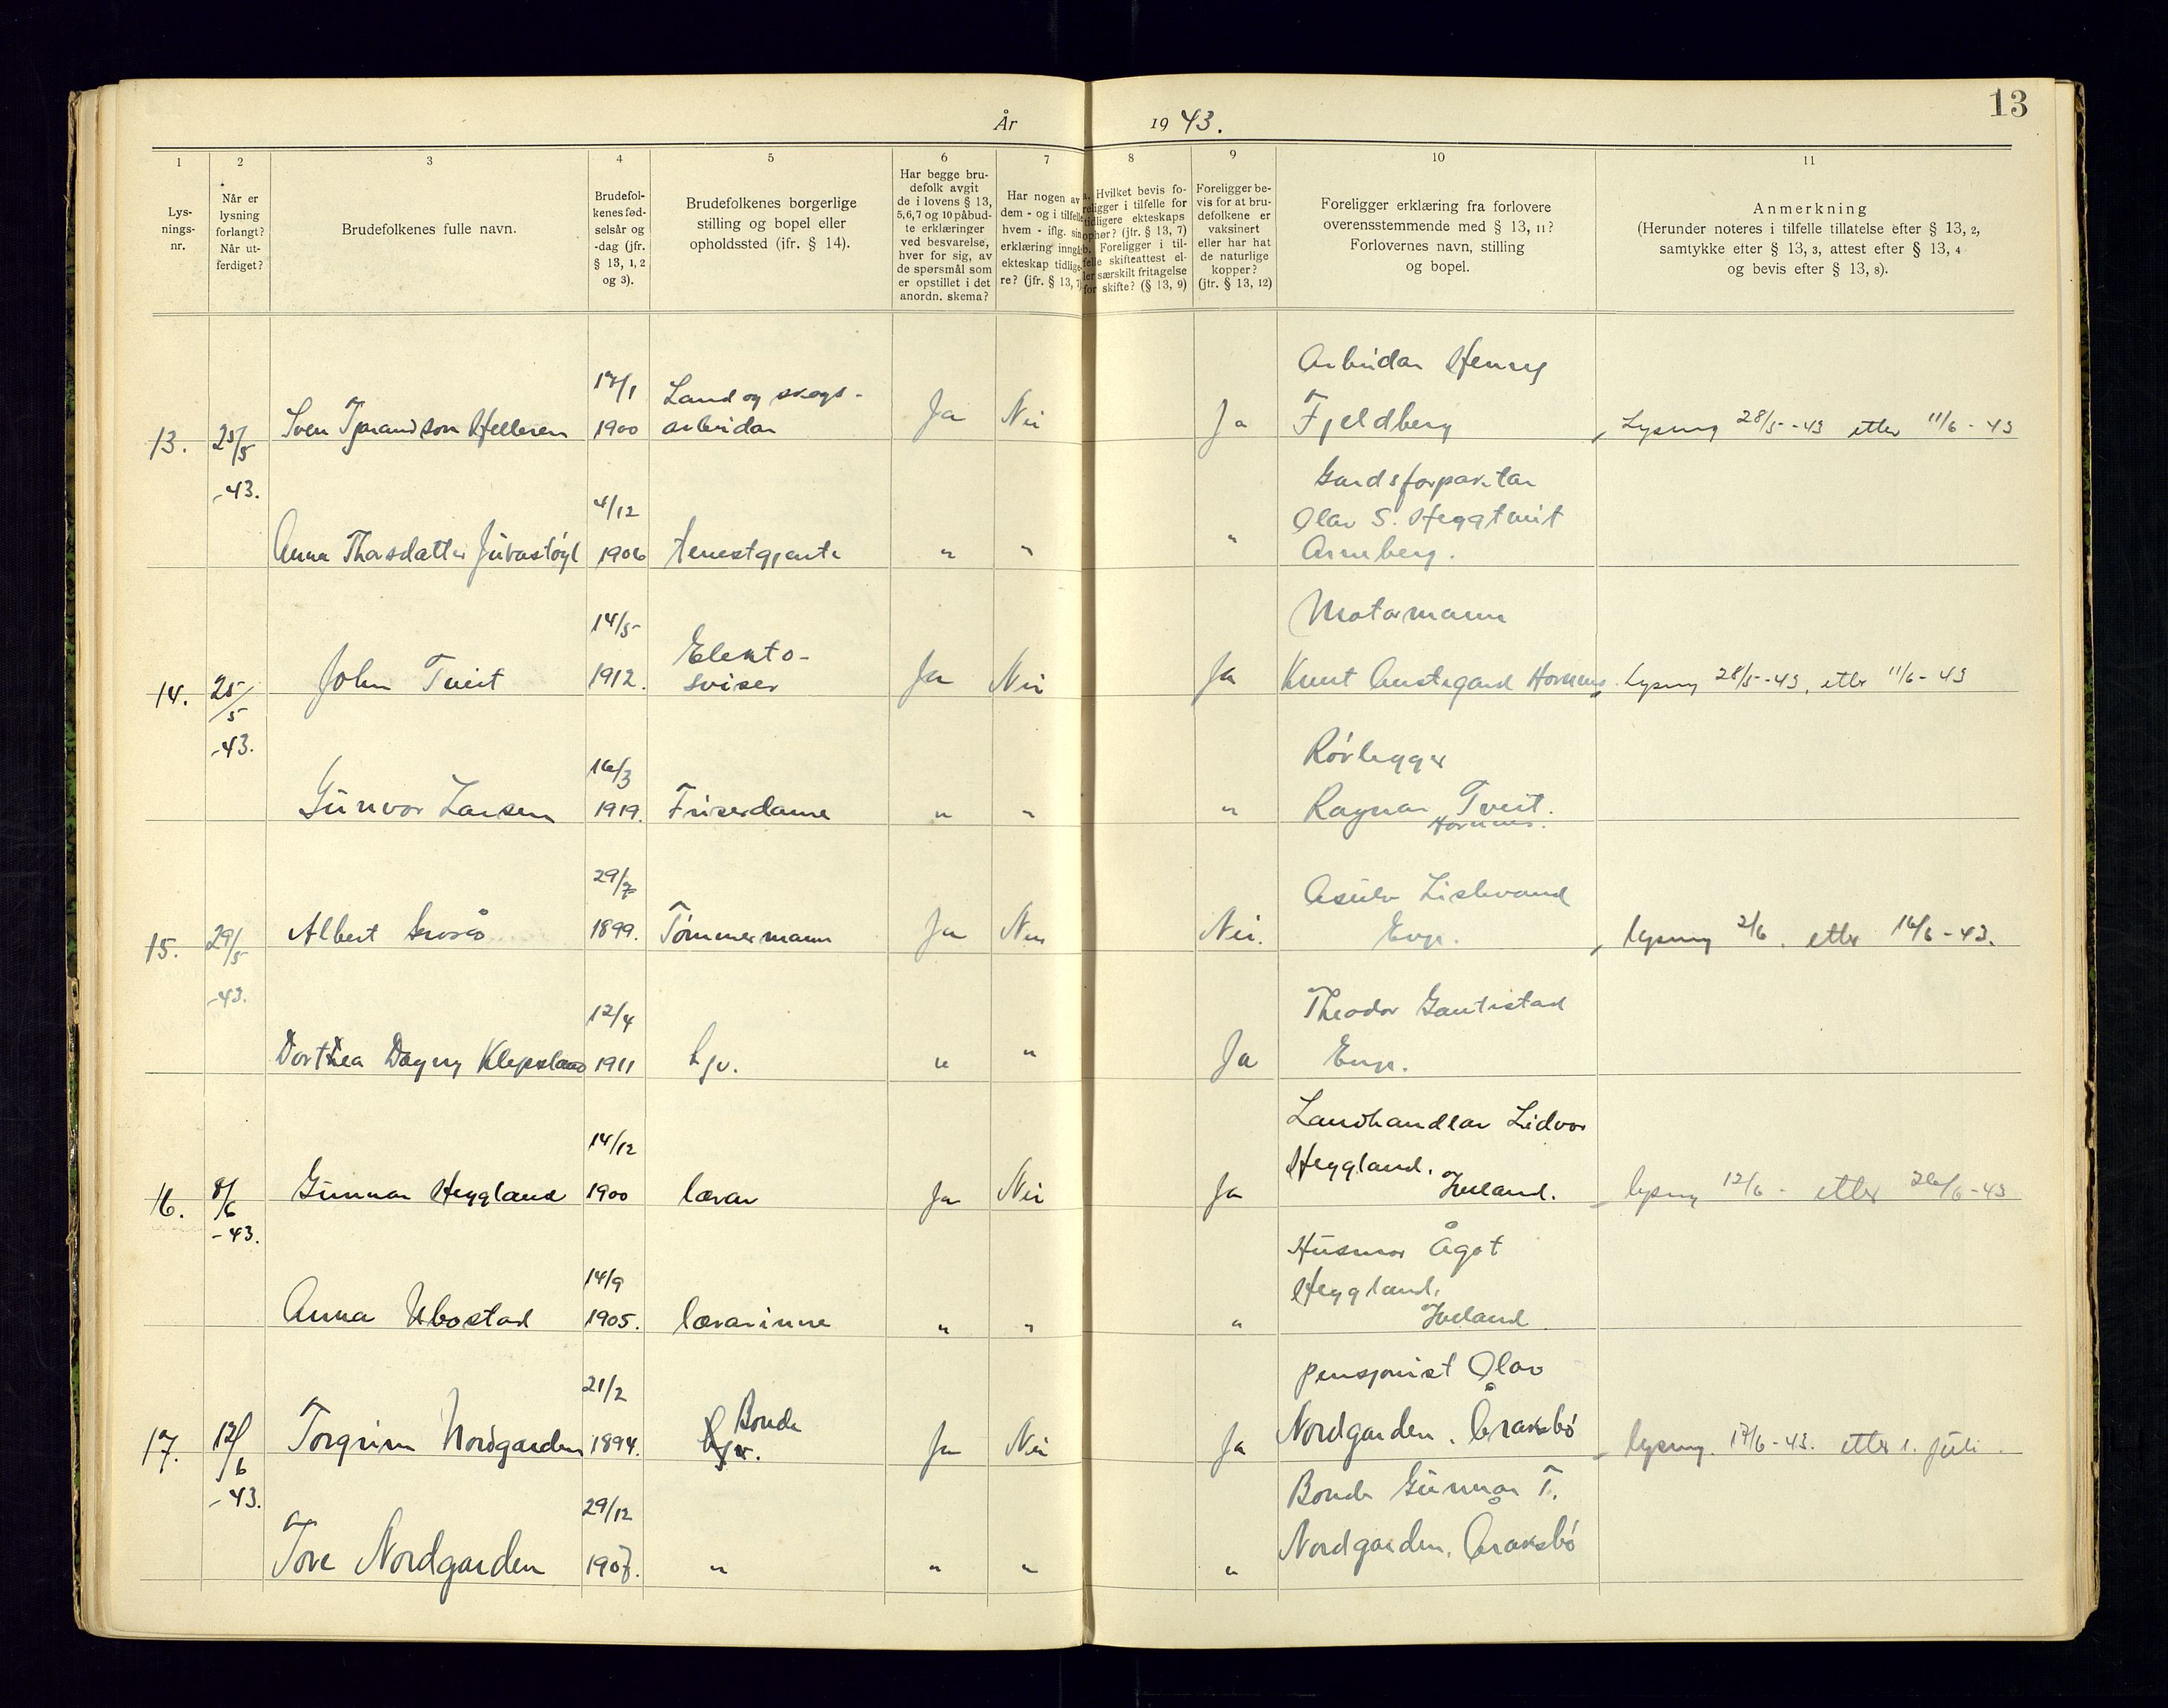 13
År
19 43.
1
2
3
4
5
6
7
8
9
10
11
Lys-
nings-
nr.
Når er
lysning
forlangt?
Når ut-
ferdiget?
Brudefolkenes fulle navn.
Brudefol-
kenes fød-
selsår og
-dag (jfr.
§ 13, 1, 2
og 3).
Brudefolkenes borgerlige
stilling og bopel eller
opholdssted (jfr. § 14).
Har begge bru-
defolk avgit
de i lovens § 13,
5,6,7 og 10 påbud-
te erklæringer
ved besvarelse,
hver for sig, av
de spørsmål som
er opstillet i det
anordn. skema?
Har nogen av
dem - og i tilfelle
hvem - iflg. sin
erklæring inngå
ekteskap tidlige-
re? (jfr. § 13, 7)
a. Hvilket bevis fo-
religger i tilfelle for
tidligere ekteskaps
ophør? (jfr. § 13, 7)
b. Foreligger i til-
felle skifteattest el-
ler særskilt fritagelse
for skifte? (§ 13, 9)
Foreligger be-
vis for at bru-
defolkene er
vaksinert
eller har hat
de naturlige
kopper?
(jfr. § 13, 12)
Foreligger erklæring fra forlovere
overensstemmende med § 13, 11?
Forlovernes navn, stilling
og bopel.
Anmerkning
(Herunder noteres i tilfelle tillatelse efter § 13, 2,
samtykke efter § 13, 3, attest efter § 13, 4
og bevis efter § 13, 8).
13.
25/5
-43.
Sven Helleren
1900
Land og skogs-
arbeidar
Ja
Nei
Ja
Arbeidar Henry
Fjeldberg
Lysing 28/5 -43 etter 11/6 - 43
Anna Thorsdatter
4/12
1906
tenestgjente
"
"
"
Gardsforpaktar
Olav S. Heggtveit
14.
25/5
-43.
John Tveit
14/5
1912.
Elektro-
sviser
Ja
Nei
Ja
Motormann
Knut Hornnes
Lysing 28/5 -43, etter 11/6 - 43
Gunvor Larsen
16/3
1919.
Friserdame
"
"
"
Rørlegger
Ragnar Tveit.
Hornnes.
15.
29/5
-43.
Albert
29/7
1899.
Tömmermann
Ja
Nei
Nei.
Asulv Lislevand
Evje.
lysing 2/6. etter 16/6 - 43.
Dorthea Dagny Klepsland
12/4
1911
hjv.
"
"
Ja
Theodor Gautestad
Evje.
16.
8/6
-43.
Gunnar Heggland
14/12
1900
lærar
Ja
Nei
Ja
Landhandlar Lidvor
Heggland.
Iveland.
lysing 12/6 - etter 26/6 - 43
Anna Ubostad
14/9
1905.
lærarinne
"
"
"
Husmor Ågot
Heggland,
Iveland
17.
12/6
-43.
Torgrim Nordgarden
21/2
1894.
Bonde
Ja
Nei
Ja
pensjonist Olav
Nordgarden. Åraksbö
lysing. 17/6 -43. etter 1. juli.
Tore Nordgarden
29/12
1907.
"
"
"
"
Bonde Gunnar T.
Nordgarden, Åraksbö